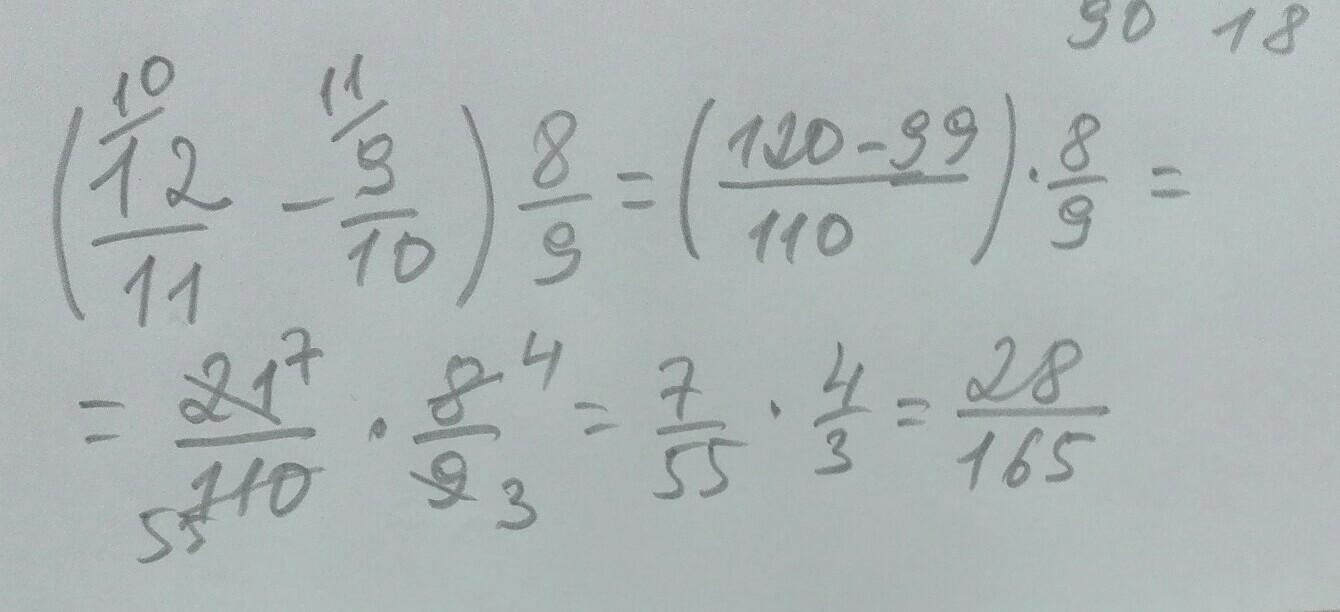 90 18
(10/ 12/11 - 11/ 9/10) 8/9 = (120-99/110) · 8/9 =
= 21 7/110 55 · 8 4/9 3 = 7/55 · 4/3 = 28/165